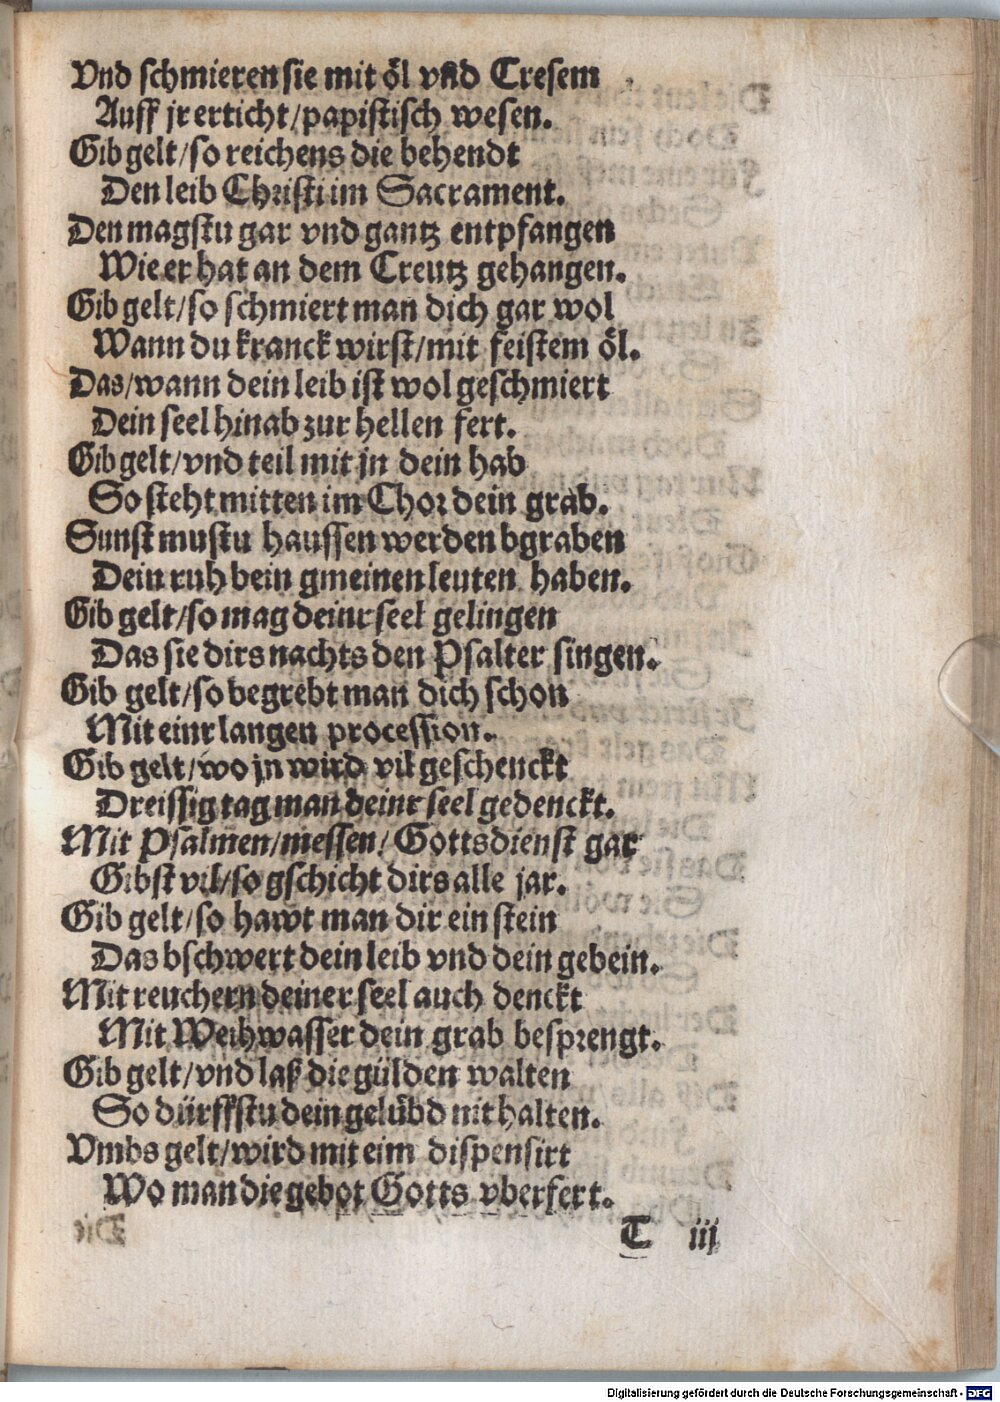 Vnd schmieren sie mit öl vnd Cresem
Auff jr erticht/papistisch wesen.
Gib gelt/so reichens die behendt
Den leib Christi im Sacrament.
Den magstu gar vnd gantz entpfangen
Wie er hat an dem Creutz gehangen.
Gib gelt/so schmiert man dich gar wol
Wann du kranck wirst/mit feistem öl.
Das/wann dein leib ist wol geschmiert
Dein seel hinab zur hellen fert.
Gib gelt/vnd teil mit jn dein hab
So steht mitten im Chor dein grab.
Sunst mustu haussen werden bgraben
Dein ruh bein gmeinen leuten haben.
Gib gelt/so mag deinr seel gelingen
Das sie dirs nachts den Psalter singen.
Gib gelt/so begrebt man dich schon
Mit einr langen procession.
Gib gelt/wo jn wird vil geschenckt
Dreissig tag man deinr seel gedenckt.
Mit Psalmen/messen/Gottsdienst gar
Gibst vil/so gschicht dirs alle jar.
Gib gelt/so hawt man dir ein stein
Das bschwert dein leib vnd dein gebein.
Mit reuchern deiner seel auch denckt
Mit Weihwasser dein grab besprengt.
Gib gelt/vnd laß die gülden walten
So dürffstu dein gelübd nit halten.
Vmbs gelt/wird mit eim dispensirt
Wo man die gebot Gotts vberfert.
T iij
Digitalisierung gefördert durch die Deutsche Forschungsgemeinschaft - DFG